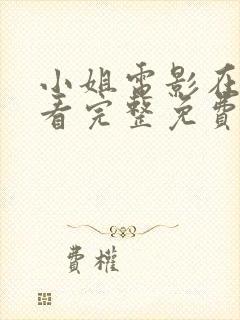 小姐電影在
看完整免費
費權